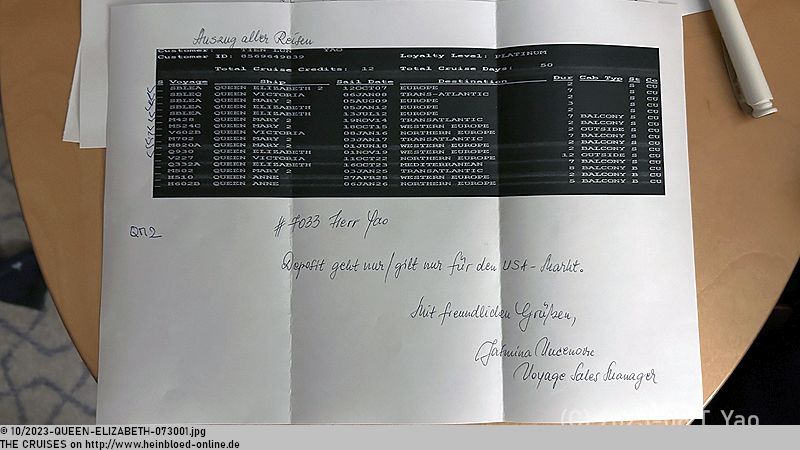 Auszug aller Reisen
Customer: TIEN LUN YAO
Customer ID: 0569649839 Loyalty Level: PLATINUM
Total Cruise Credits: 12 Total Cruise Days: 50
S Voyage Ship Sail Date Destination Dur Cab Typ St Co
SBLEA QUEEN ELIZABETH 2 12OCT07 EUROPE 2 S CU
QUEEN VICTORIA 06JAN08 TRANS-ATLANTIC 7 S CU
SBLEA QUEEN MARY 2 05AUG09 EUROPE S CU
SBLEA QUEEN ELIZABETH 05JAN12 EUROPE S CU
SBLEA QUEEN ELIZABETH 13JUL12 EUROPE S CU
M428 QUEEN MARY 2 19NOV14 TRANSATLANTIC 7 BALCONY S CU
QUEEN MARY 2 WESTERN EUROPE 2 BALCONY S CU
V602B QUEEN VICTORIA 08JAN16 NORTHERN EUROPE 2 OUTSIDE S CU
M702 QUEEN MARY 2 03JAN17 TRANSATLANTIC BALCONY S CU
M820A QUEEN MARY 2 01JUN18 WESTERN EUROPE 2 BALCONY S CU
QUEEN ELIZABETH 01NOV19 WESTERN EUROPE 2 BALCONY S CU
V227 QUEEN VICTORIA 11OCT22 NORTHERN EUROPE 12 OUTSIDE S CU
Q332A QUEEN ELIZABETH 16OCT23 MEDITERRANEAN 7 BALCONY S CU
M502 QUEEN MARY 2 03JAN25 TRANSATLANTIC BALCONY B CU
H510 QUEEN ANNE 27APR25 WESTERN EUROPE 2 BALCONY B CU
H602B QUEEN ANNE 06JAN26 NORTHERN EUROPE 5 BALCONY B CU
QM2
# 7033 Herr Yao
Deposit geht nur/gilt nur für den USA-Markt.
Mit freundlichen Grüßen,
Voyage Sales Manager
T. Yao
© 10/2023-QUEEN-ELIZABETH-073001.jpg
THE CRUISES on http://www.heinbloed-online.de